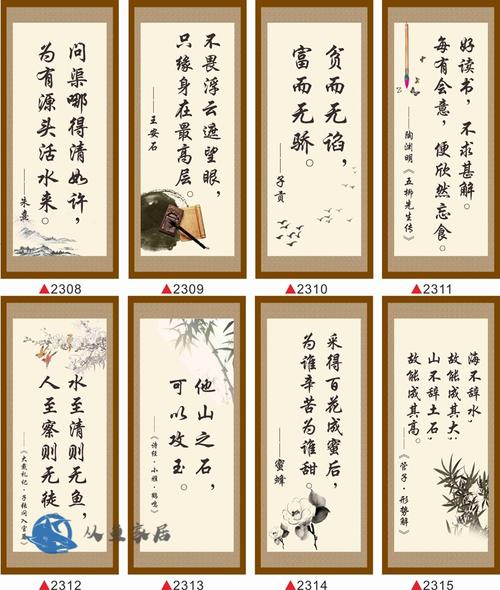 问渠哪得清如许，
为有源头活水来。
——朱熹
▲2308
不畏浮云遮望眼，
只缘身在最高层。
——王安石
▲2309
贫而无谄，
富而无骄。
——子贡
▲2310
好读书，不求甚解。
每有会意，便欣然忘食。
——陶渊明《五柳先生传》
▲2311
水至清则无鱼，
人至察则无徒
——《大戴礼记·子张问入官
▲2312
他山之石，
可以攻玉。
——《诗经·小雅·鹤鸣》
▲2313
采得百花成蜜后，
为谁辛苦为谁甜。
——蜜蜂
▲2314
海不辞水，
故能成其大；
山不辞土石，
故能成其高。
——《管子·形势解》
▲2315
从鱼家居